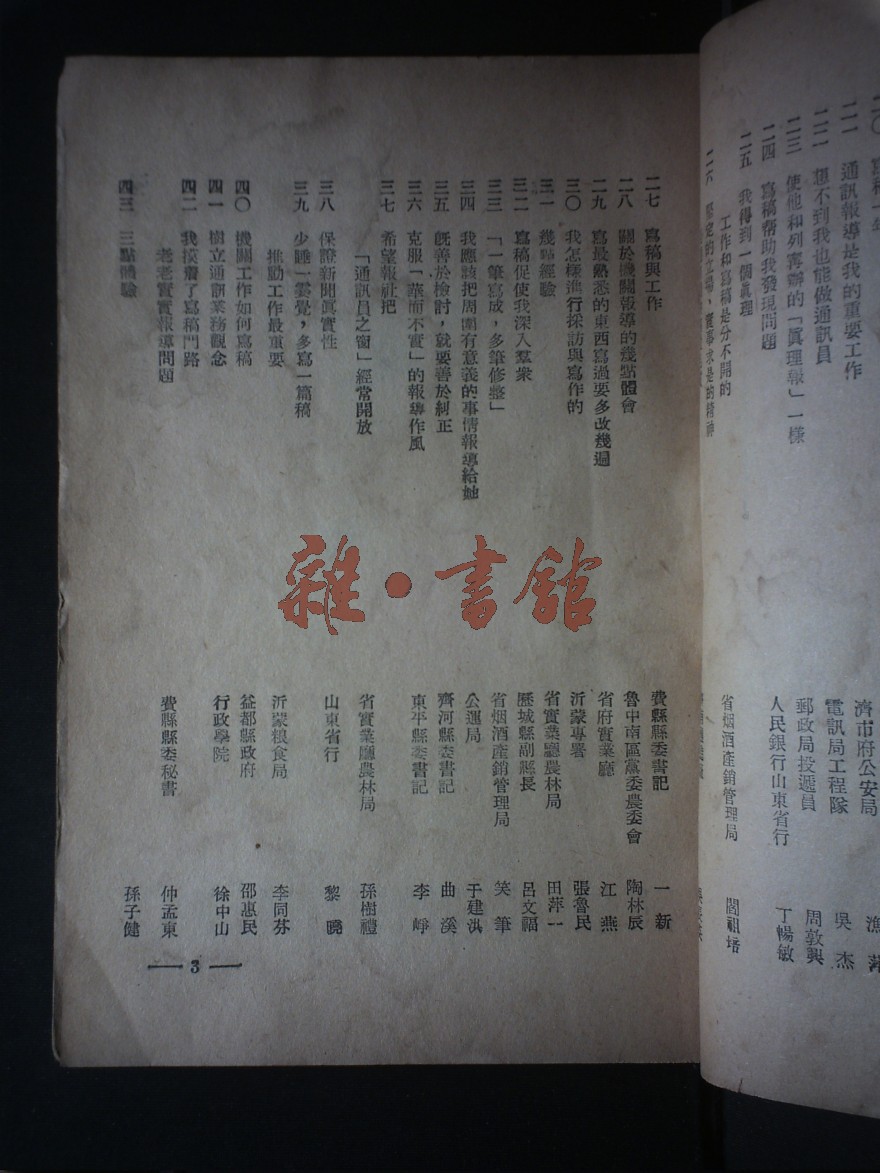 濟市府公安局
二一 通訊報導是我的重要工作 電訊局工程隊 吳杰
二二 想不到我也能做通訊員 郵政局投遞員 周敦興
二三 使他和列寧辦的「眞理報」一樣 人民銀行山東省行 丁暢敏
二四 寫稿帮助我發現問題
二五 我得到一個眞理
工作和寫稿是分不開的 省烟酒產銷管理局 閻祖培
二六 堅定的立場、實事求是的精神
二七 寫稿與工作 費縣縣委書記 一新
二八 關於機關報導的幾點體會 魯中南區黨委農委會 陶林辰
二九 寫最熟悉的東西寫過要多改幾遍 省府實業廳 江燕
三〇 我怎樣進行採訪與寫作的 沂蒙專署 張魯民
三一 幾點經驗 省實業廳農林局 田萍一
三二 寫稿促使我深入羣衆 歷城縣副縣長 呂文福
三三 「一筆寫成，多筆修整」 省烟酒產銷管理局 笑筆
三四 我應該把周圍有意義的事情報導給她 公運局 于建洪
三五 旣善於檢討，就要善於糾正 齊河縣委書記 曲溪
三六 克服「華而不實」的報導作風 東平縣委書記 李崢
三七 希望報社把
「通訊員之窗」經常開放 省實業廳農林局 孫樹禮
三八 保證新聞眞實性 山東省行 黎曉
三九 少睡一霎覺，多寫一篇稿
推動工作最重要 沂蒙粮食局 李同芬
四〇 機關工作如何寫稿 益都縣政府 邵惠民
四一 樹立通訊業務觀念 行政學院 徐中山
四二 我摸着了寫稿門路
老老實實報導問題 費縣縣委秘書 仲孟東
四三 三點體驗 孫子健
— 3 —
雜·書館